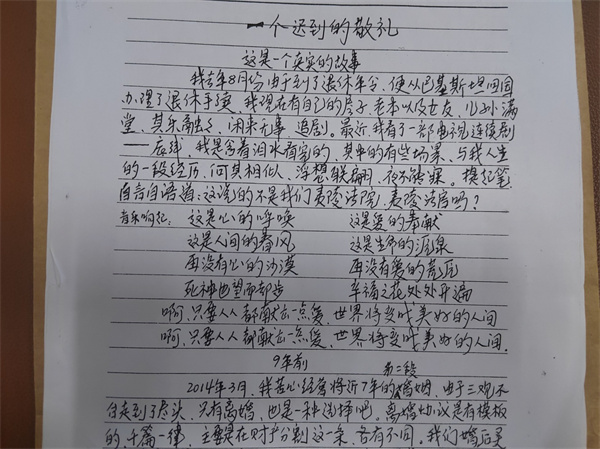 一个迟到的敬礼
这是一个真实的故事
我去年8月份由于到了退休年令,便从巴基斯坦回国
办理了退休手续,我现在有自己的房子,老本以及女友,儿孙满
堂,其乐融融,闲来无事,追剧。最近我看了一部电视连续剧
——底线,我是含着泪水看完的,其中的有些场景,与我人生
的一段经历,何其相似,浮想联翩,夜不能寐。提起笔
自言自语道:这说的不是我们夷陵法院,夷陵法官吗?
音乐响起:这是心的呼唤 这是爱的奉献
这是人间的春风 这是生命的源泉
再没有心的沙漠 再没有爱的荒原
死神也望而却步 幸福之花处处开遍
啊,只要人人都献出一点爱,世界将变成美好的人间
啊,只要人人都献出一点爱,世界将变成美好的人间.
9年前 第二段
2014年3月,我苦心经营将近7年的婚姻,由于三观不
合走到了尽头,只有离婚,也是一种选择吧。离婚协议是有模板
的,千篇一律,主要是在财产分割这一条,各有不同。我们婚后买